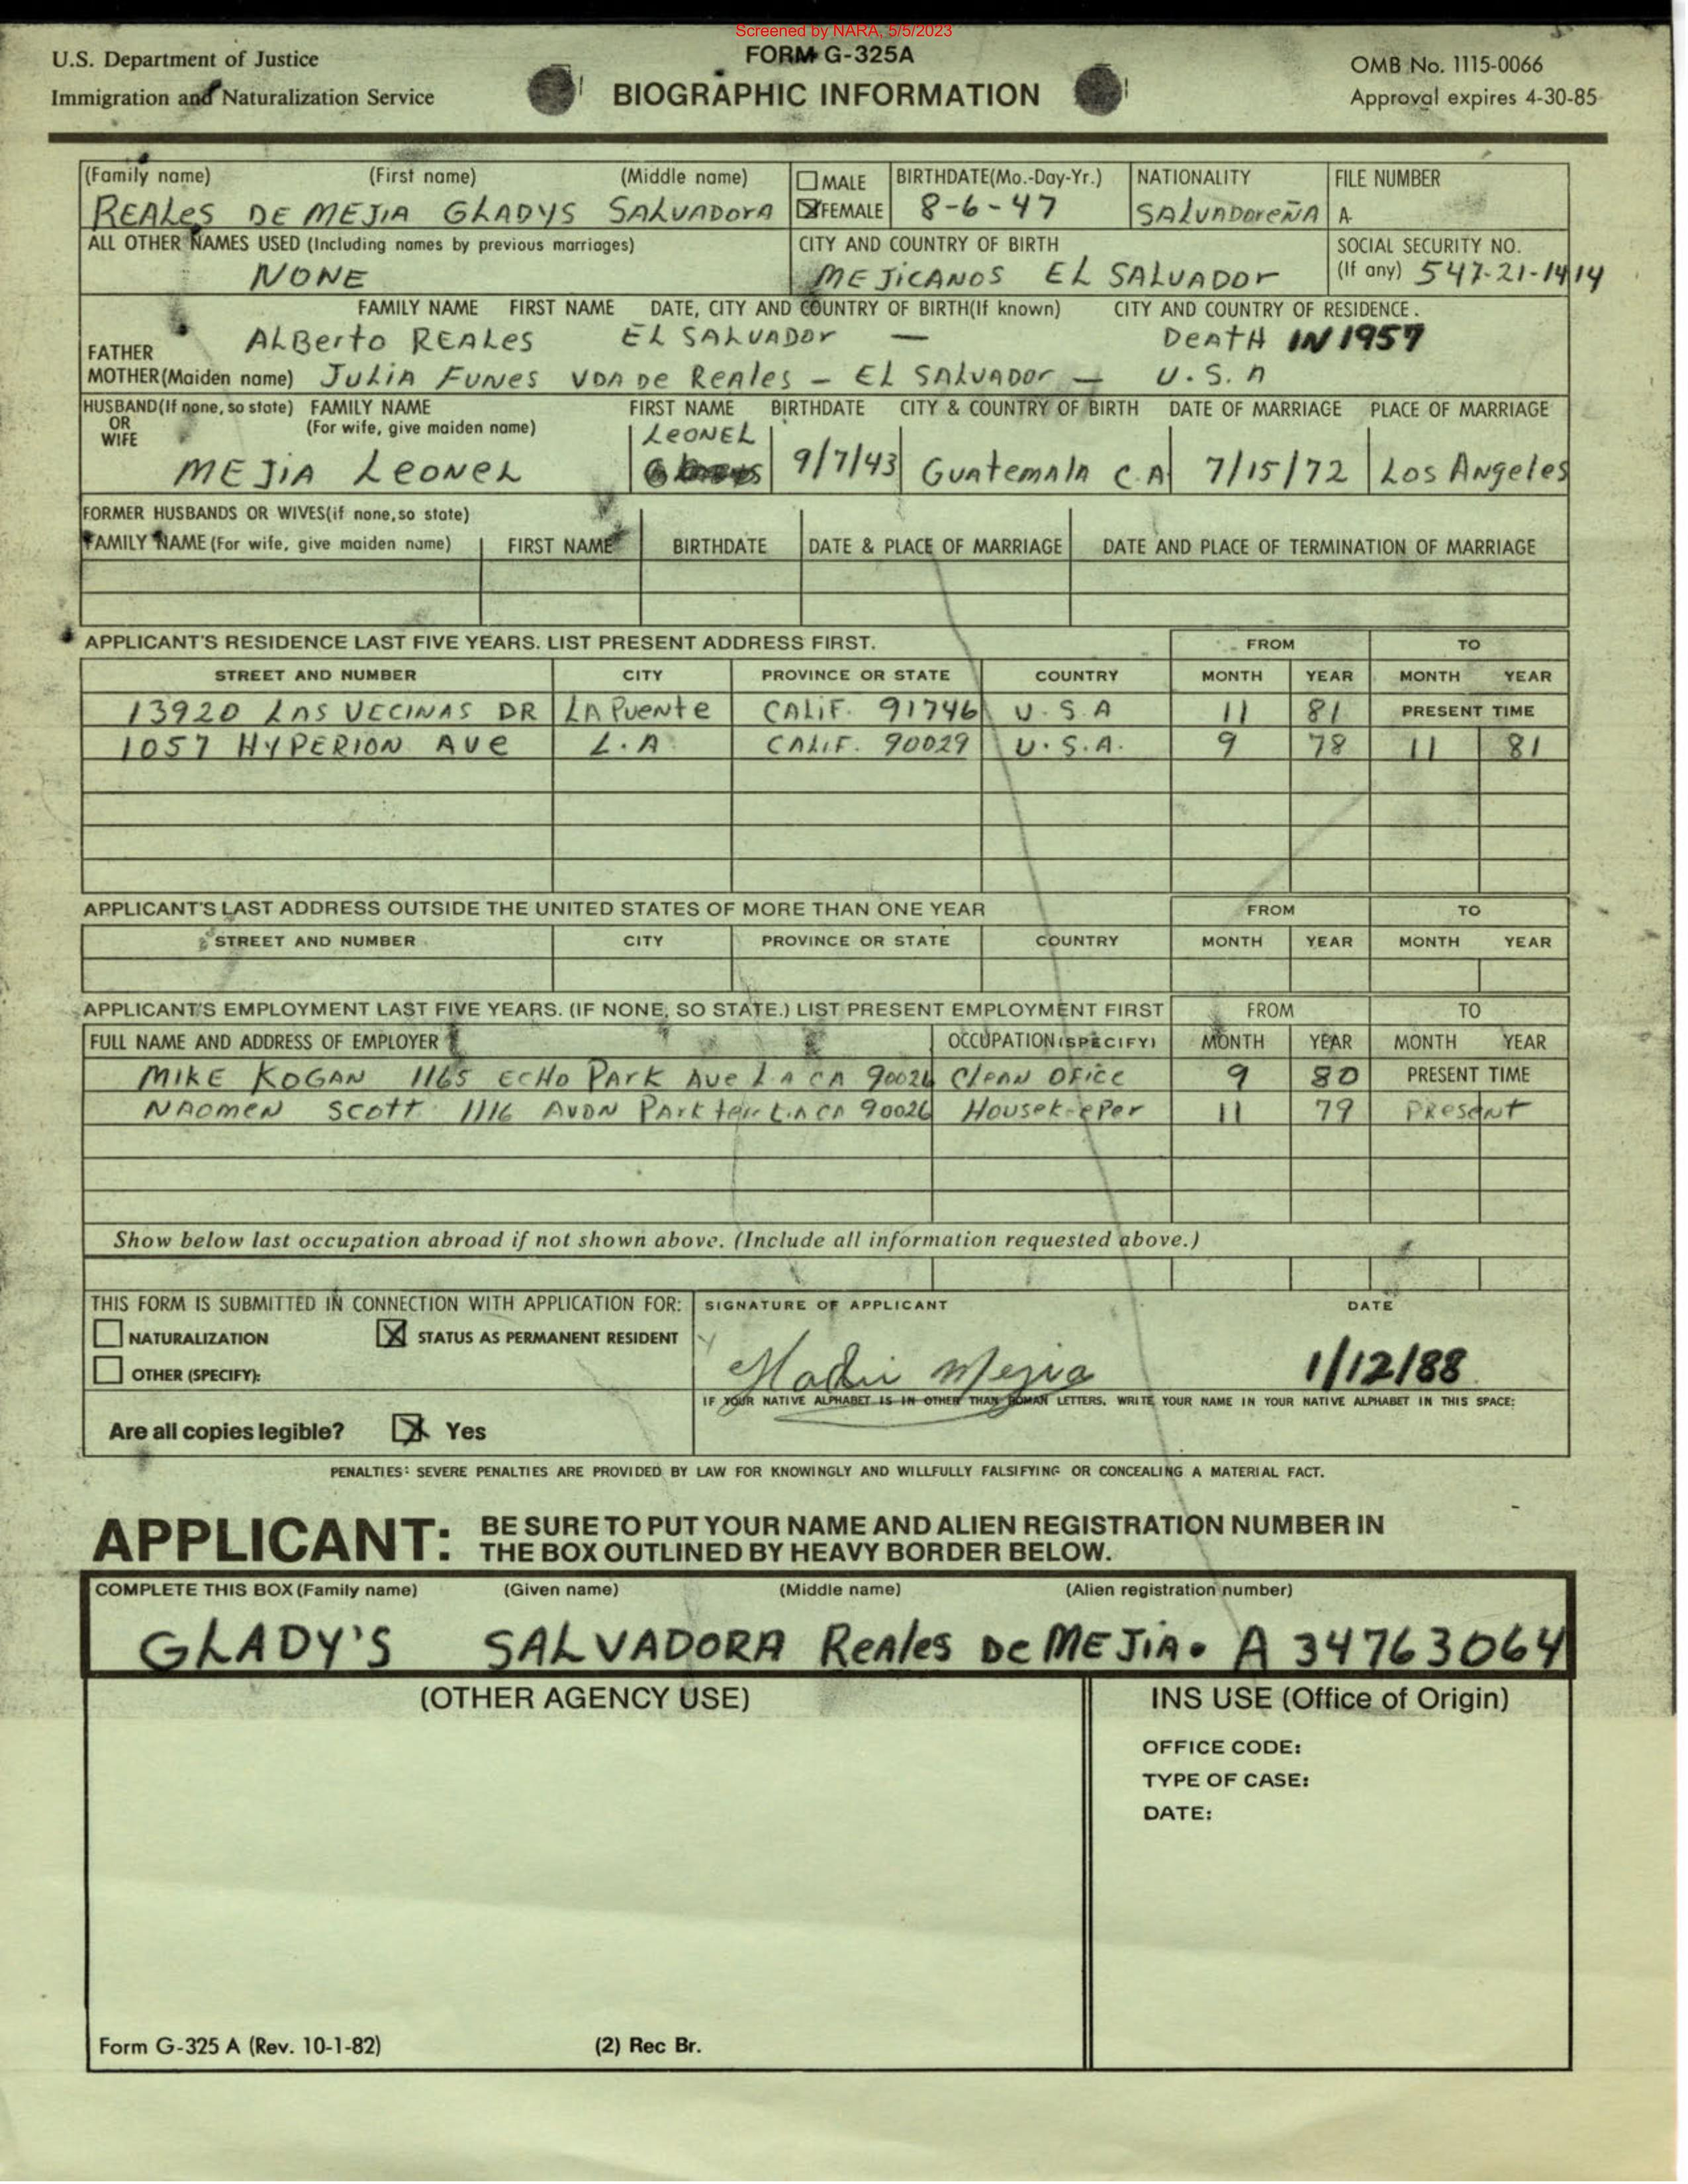 Screened by NARA, 5/5/2023
U.S. Department of Justice
Immigration and Naturalization Service
FORM G-325A
BIOGRAPHIC INFORMATION
OMB No. 1115-0066
Approval expires 4-30-85
(Family name) (First name) (Middle name) MALE BIRTHDATE(Mo.-Day-Yr.) NATIONALITY FILE NUMBER
REALes DE MEJIA GLADYS SALVADOrA FEMALE 8-6-47 SALVADOREÑA A-
ALL OTHER NAMES USED (Including names by previous marriages) CITY AND COUNTRY OF BIRTH SOCIAL SECURITY NO.
NONE MEJICANOS EL SALVADOr (If any) 547-21-1414
FAMILY NAME FIRST NAME DATE, CITY AND COUNTRY OF BIRTH(If known) CITY AND COUNTRY OF RESIDENCE.
FATHER ALBerto REALes EL SALVADOr — DeATH IN 1957
MOTHER(Maiden name) JULIA FUNes VDA De Reales - EL SALVADOr — U.S.A
HUSBAND(If none, so state) FAMILY NAME FIRST NAME BIRTHDATE CITY & COUNTRY OF BIRTH DATE OF MARRIAGE PLACE OF MARRIAGE
OR (For wife, give maiden name)
WIFE
MEJIA LeONeL LeONEL 9/7/43 GuAtemAlA C.A 7/15/72 Los Angeles
FORMER HUSBANDS OR WIVES(if none,so state)
FAMILY NAME (For wife, give maiden name) FIRST NAME BIRTHDATE DATE & PLACE OF MARRIAGE DATE AND PLACE OF TERMINATION OF MARRIAGE
APPLICANT'S RESIDENCE LAST FIVE YEARS. LIST PRESENT ADDRESS FIRST. FROM TO
STREET AND NUMBER CITY PROVINCE OR STATE COUNTRY MONTH YEAR MONTH YEAR
13920 LAS VECINAS DR LA PueNte CALIF. 91746 U.S.A 11 81 PRESENT TIME
1057 HYPERION AVe L.A CALIF. 90029 U.S.A. 9 78 11 81
APPLICANT'S LAST ADDRESS OUTSIDE THE UNITED STATES OF MORE THAN ONE YEAR FROM TO
STREET AND NUMBER CITY PROVINCE OR STATE COUNTRY MONTH YEAR MONTH YEAR
APPLICANT'S EMPLOYMENT LAST FIVE YEARS. (IF NONE, SO STATE.) LIST PRESENT EMPLOYMENT FIRST FROM TO
FULL NAME AND ADDRESS OF EMPLOYER OCCUPATION (SPECIFY) MONTH YEAR MONTH YEAR
MIKE KOGAN 1165 ECHO PArK AVe L.A CA 90026 CleAN OFice 9 80 PRESENT TIME
NAOMEN SCOTT 1116 AVON PArK ter L.A CA 90026 HouseKeePer 11 79 PReseNT
Show below last occupation abroad if not shown above. (Include all information requested above.)
THIS FORM IS SUBMITTED IN CONNECTION WITH APPLICATION FOR: SIGNATURE OF APPLICANT DATE
NATURALIZATION STATUS AS PERMANENT RESIDENT
OTHER (SPECIFY): Mejia 1/12/88
IF YOUR NATIVE ALPHABET IS IN OTHER THAN ROMAN LETTERS, WRITE YOUR NAME IN YOUR NATIVE ALPHABET IN THIS SPACE:
Are all copies legible? Yes
PENALTIES: SEVERE PENALTIES ARE PROVIDED BY LAW FOR KNOWINGLY AND WILLFULLY FALSIFYING OR CONCEALING A MATERIAL FACT.
APPLICANT: BE SURE TO PUT YOUR NAME AND ALIEN REGISTRATION NUMBER IN
THE BOX OUTLINED BY HEAVY BORDER BELOW.
COMPLETE THIS BOX (Family name) (Given name) (Middle name) (Alien registration number)
GLADY'S SALVADORA ReAles De MEJIA. A 34763064
(OTHER AGENCY USE) INS USE (Office of Origin)
OFFICE CODE:
TYPE OF CASE:
DATE:
Form G-325 A (Rev. 10-1-82) (2) Rec Br.